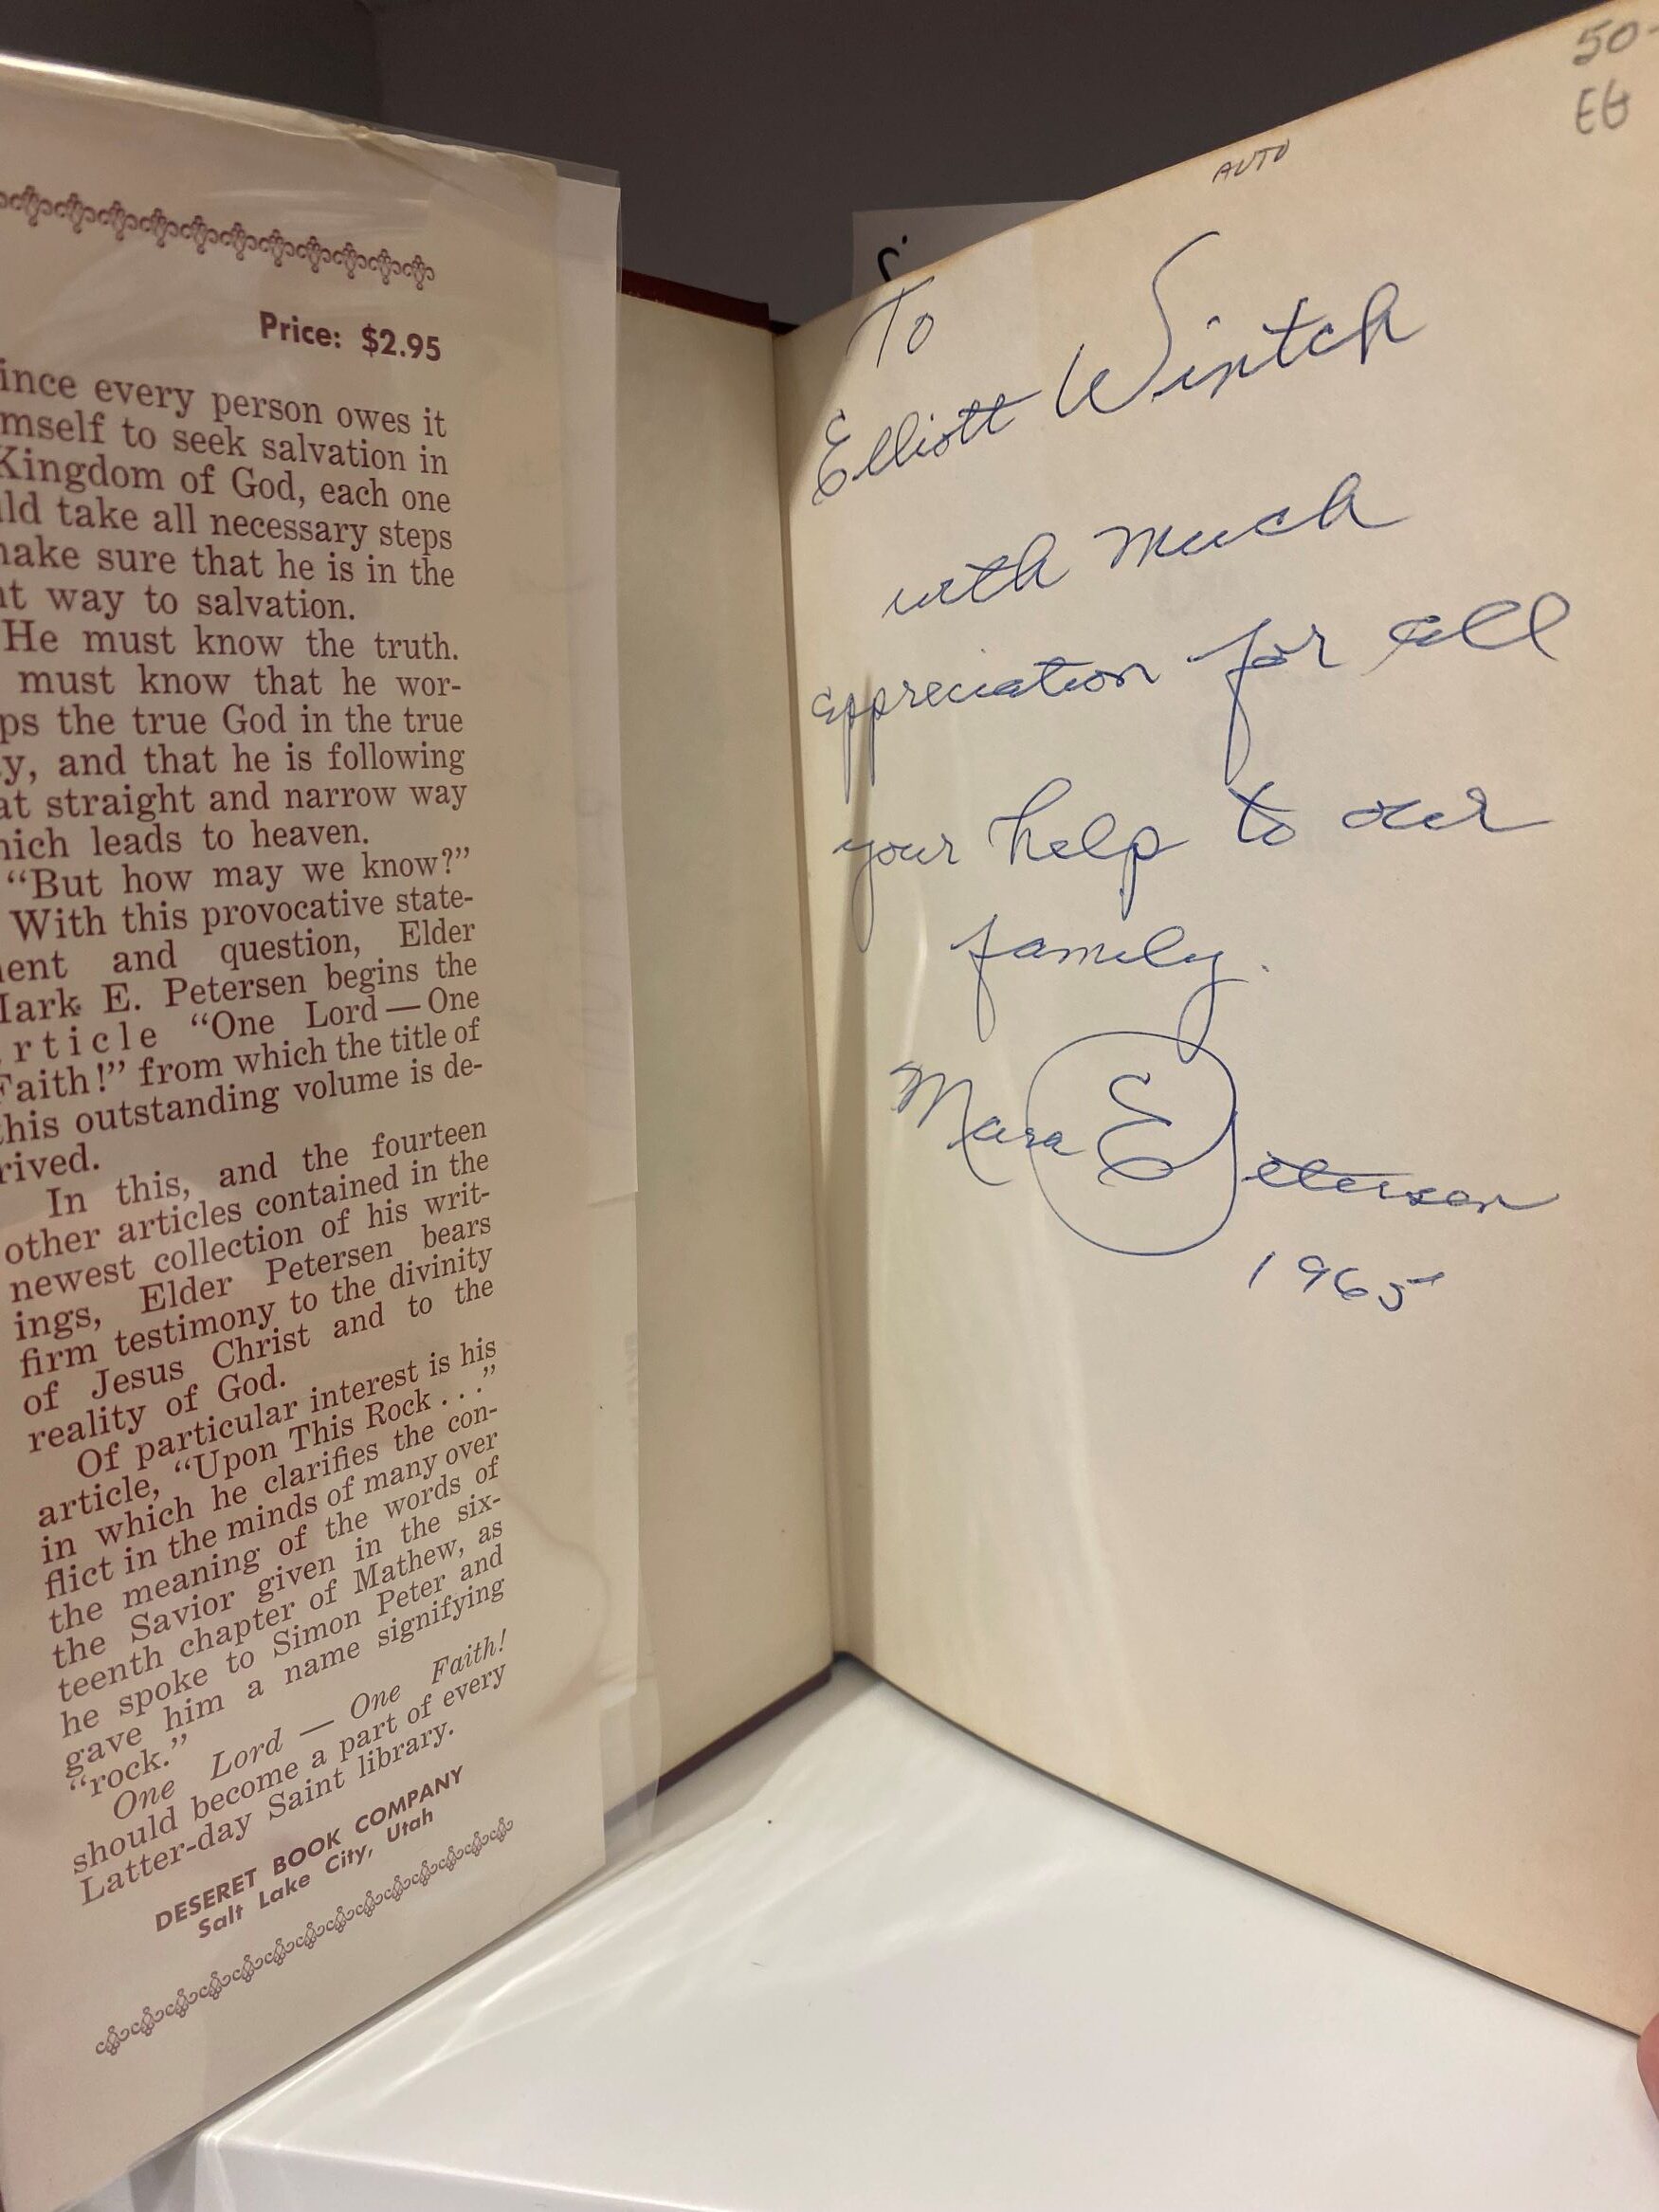 Price: $2.95
ince every person owes it
mself to seek salvation in
Kingdom of God, each one
uld take all necessary steps
make sure that he is in the
ht way to salvation.
He must know the truth.
must know that he wor-
ps the true God in the true
y, and that he is following
at straight and narrow way
hich leads to heaven.
“But how may we know?”
With this provocative state-
ment and question, Elder
Mark E. Petersen begins the
article “One Lord — One
Faith!” from which the title of
this outstanding volume is de-
rived.
In this, and the fourteen
other articles contained in the
newest collection of his writ-
ings, Elder Petersen bears
firm testimony to the divinity
of Jesus Christ and to the
reality of God.
Of particular interest is his
article, “Upon This Rock . . .”
in which he clarifies the con-
flict in the minds of many over
the meaning of the words of
the Savior given in the six-
teenth chapter of Mathew, as
he spoke to Simon Peter and
gave him a name signifying
“rock.”
One Lord — One Faith!
should become a part of every
Latter-day Saint library.
DESERET BOOK COMPANY
Salt Lake City, Utah
50-
EG
AUTO
To
Elliott Wintch
with much
appreciation for all
your help to our
family.
Mark E Petersen
1965